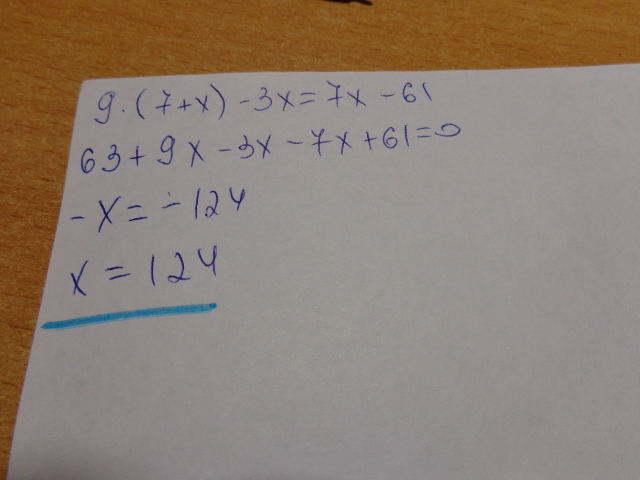 9·(7+x) -3x=7x-61
63+9x-3x-7x+61=0
-x=-124
x=124